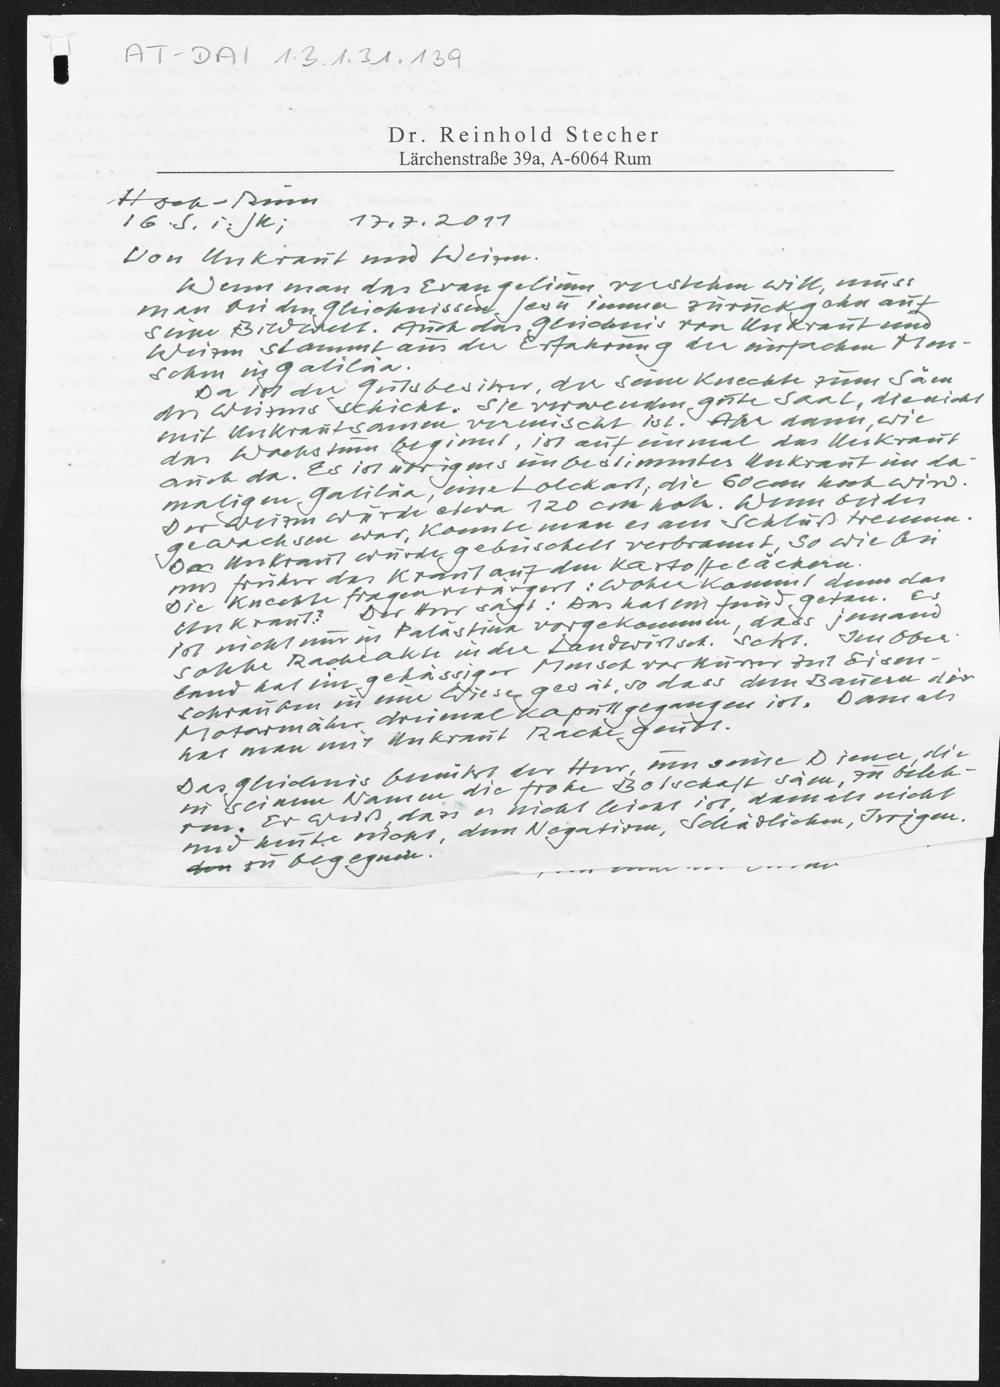 AT-DAI 1.3.1.31.139
Dr. Reinhold Stecher
Lärchenstraße 39a, A-6064 Rum
Hoch-Rum
16. S. i. Jk; 17.7.2011
Von Unkraut und Weizen.
Wenn man das Evangelium verstehen will, muss
man bei den Gleichnissen Jesu immer zurückgehn auf
seine Bildwelt. Auch das Gleichnis von Unkraut und
Weizen stammt aus der Erfahrung der einfachen Men-
schen in Galiläa.
Da ist der Gutsbesitzer, der seine Knechte zum Säen
des Weizens schickt. Sie verwenden gute Saat, die nicht
mit Unkrautsamen vermischt ist. Aber dann, wie
das Wachstum beginnt, ist auf einmal das Unkraut
auch da. Es ist übrigens ein bestimmtes Unkraut im da-
maligen Galiläa, eine Lolchart, die 60 cm hoch wird.
Der Weizen würde etwa 120 cm hoch. Wenn beides
gewachsen war, konnte man es am Schluß trennen.
Das Unkraut wurde gebüschelt verbrannt, so wie bei
uns früher das Kraut auf den Kartoffeläckern.
Die Knechte fragen verärgert: Woher kommt denn das
Unkraut? Der Herr sagt: Das hat ein Feind getan. Es
ist nicht nur in Palästina vorgekommen, dass jemand
solche Racheakte in der Landwirtsch. setzt. Im Ober-
land hat ein gehässiger Mensch vor kurzer Zeit Eisen-
schrauben in eine Wiese gesät, so dass dem Bauern der
Motormäher dreimal kaputtgegangen ist. Damals
hat man mit Unkraut Rache geübt.
Das Gleichnis benützt der Herr, um seine Diener, die
in seinem Namen die frohe Botschaft säen, zu beleh-
ren. Er weiß, dass es nicht leicht ist, damals nicht
und heute nicht, dem Negativen, Schädlichen, Irrigen.
zu begegnen.